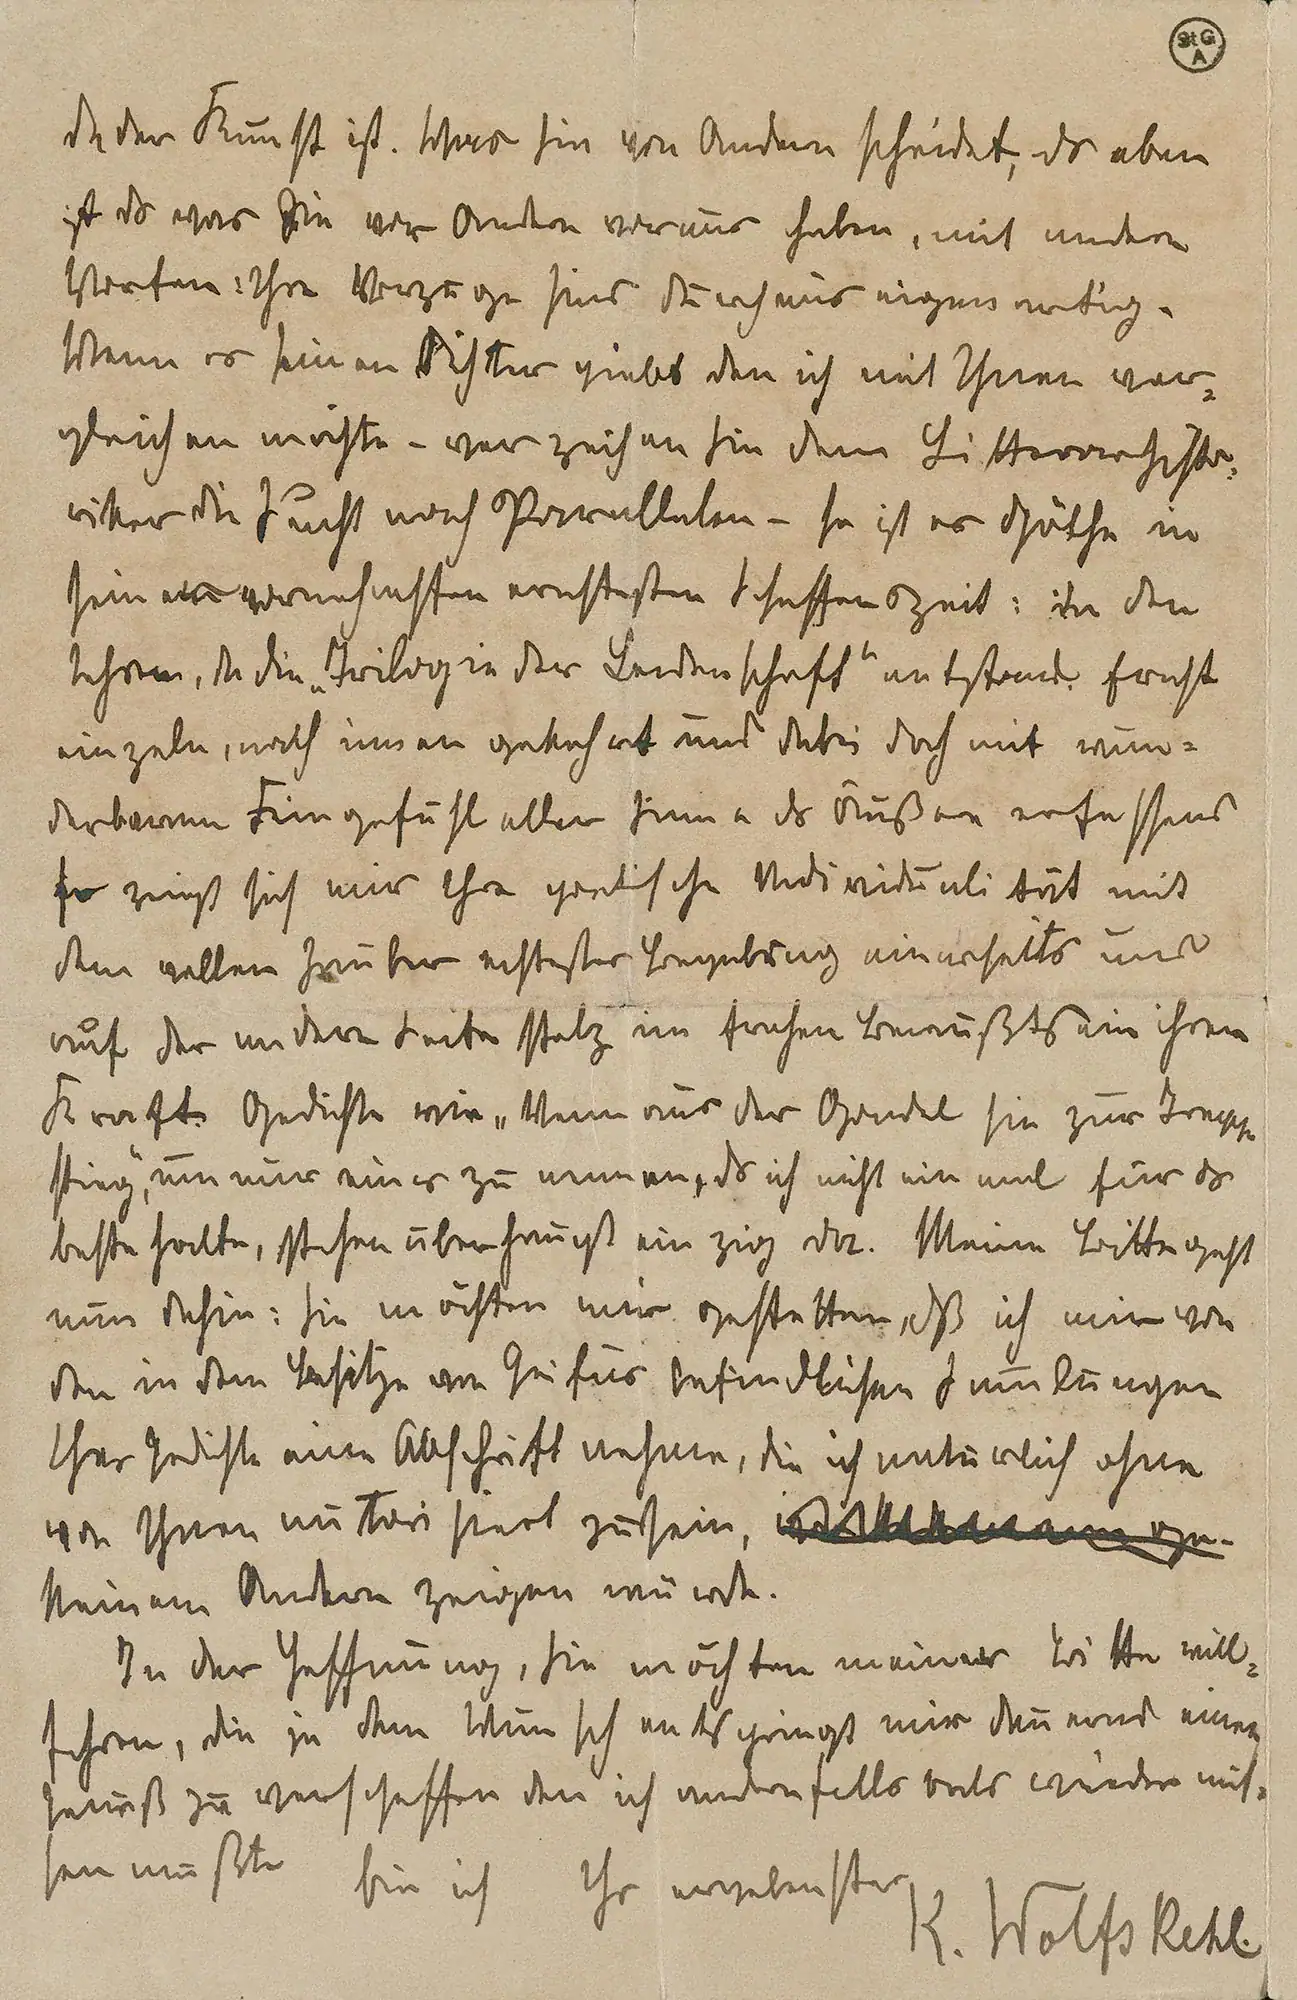 StG
A
da der Kunst ist. Was Sie von Andern scheidet, ds eben
ist ds was Sie vor Andern voraus haben, mit andern
Worten: Ihre Vorzüge sind durchaus eigenartig.
Wenn es einen Dichter giebt den ich mit Ihnen ver-
gleichen möchte – verzeihen Sie dem Litterarhisto-
riker die Sucht nach Parallelen – so ist es Göthe in
seiner vornehmsten ernstesten Schaffenszeit: in den
Jahren, da die „Trilogie der Leidenschaft“ entstand. Ernst
einzeln, nach innen gekehrt und dabei doch mit wun-
derbarem Feingefühl aller Sinne ds Äußere erfassend
so zeigt sich mir Ihre poetische Individualität mit
dem vollen Zauber echtester Begabung einerseits und
auf der andern Seite stolz im frohen Bewußtsein ihrer
Kraft. Gedichte wie „Wenn aus der Gondel sie zur Treppe
stieg“, um nur eines zu nennen, ds ich nicht einmal für ds
beste halte, stehen überhaupt einzig da. Meine Bitte geht
nun dahin: Sie möchten mir gestatten, dß ich mir von
den in dem Besitze von Geifus befindlichen Samlungen
Ihrer Gedichte eine Abschrift nehme, die ich natürlich ohne
von Ihnen autorisiert zu sein,
keinem Andern zeigen würde.
In der Hoffnung, Sie möchten meiner Bitte will-
fahren, die ja dem Wunsch entspringt mir dauernd einen
Genuß zu verschaffen den ich andernfalls bald wieder mis-
sen müßte bin ich Ihr ergebenster
K. Wolfskehl.